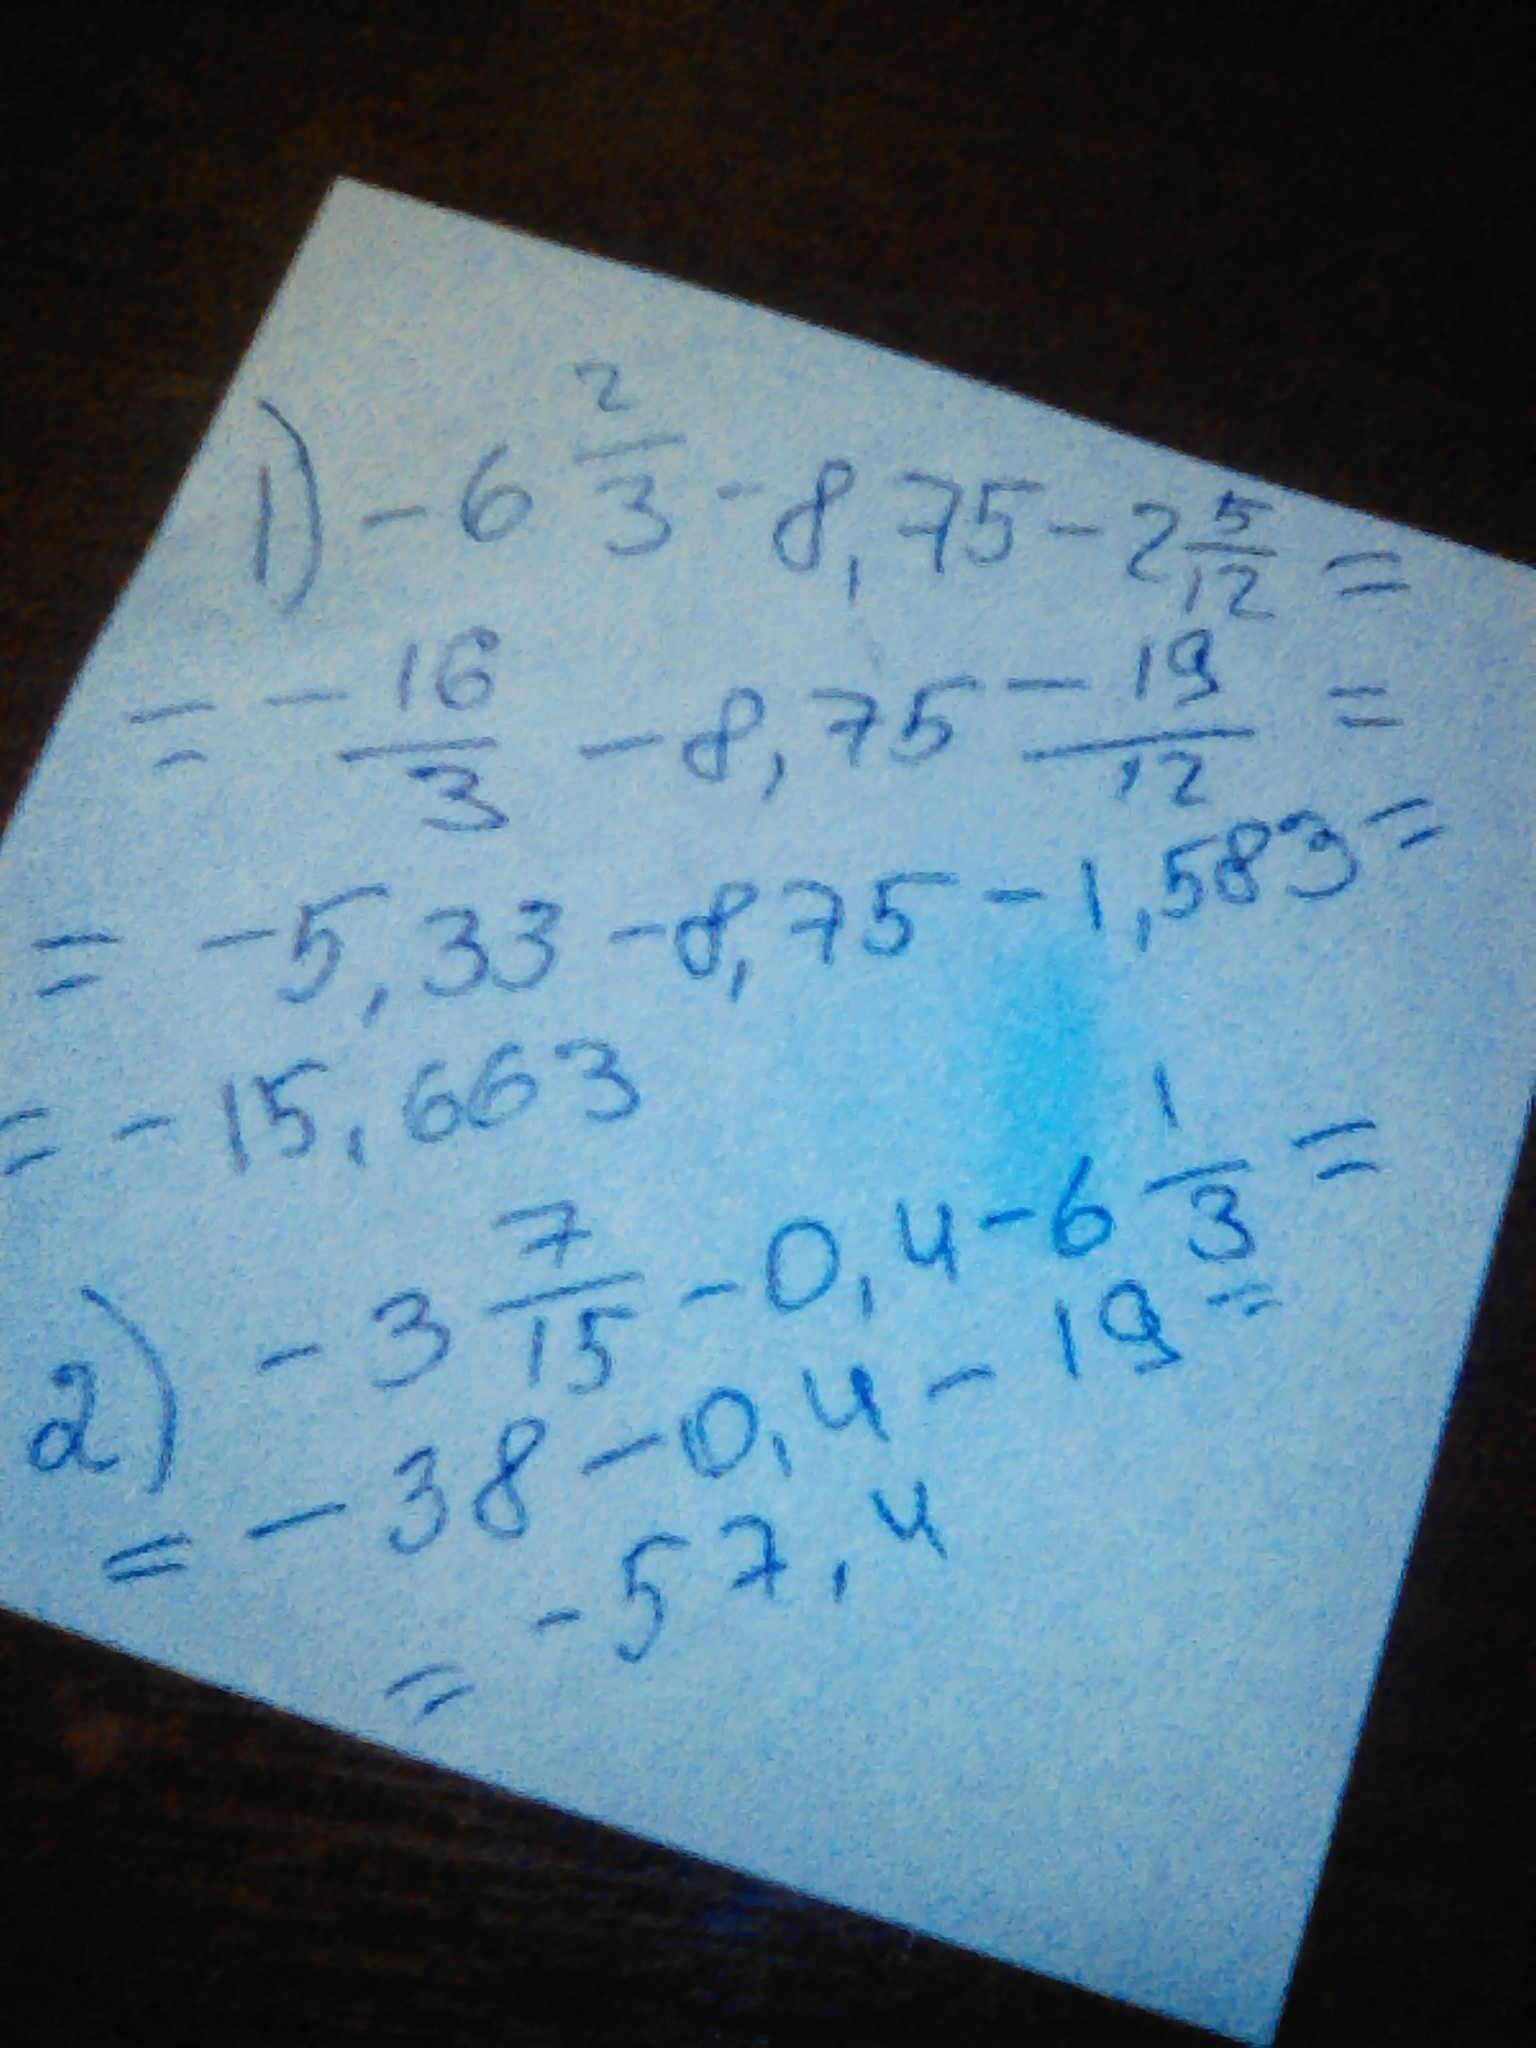 1) -6 2/3 - 8,75 - 2 5/12 =
= - 16/3 - 8,75 - 19/12 =
= -5,33 - 8,75 - 1,583 =
= - 15,663
2) - 3 7/15 - 0,4 - 6 1/3 =
= - 38 - 0,4 - 19 =
= -57,4